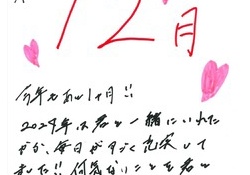 12月
今年もあと1ヶ月!!
2024年は君と一緒にいれた
から、毎日がすごく充実して
ました!! 何気ないことも君と